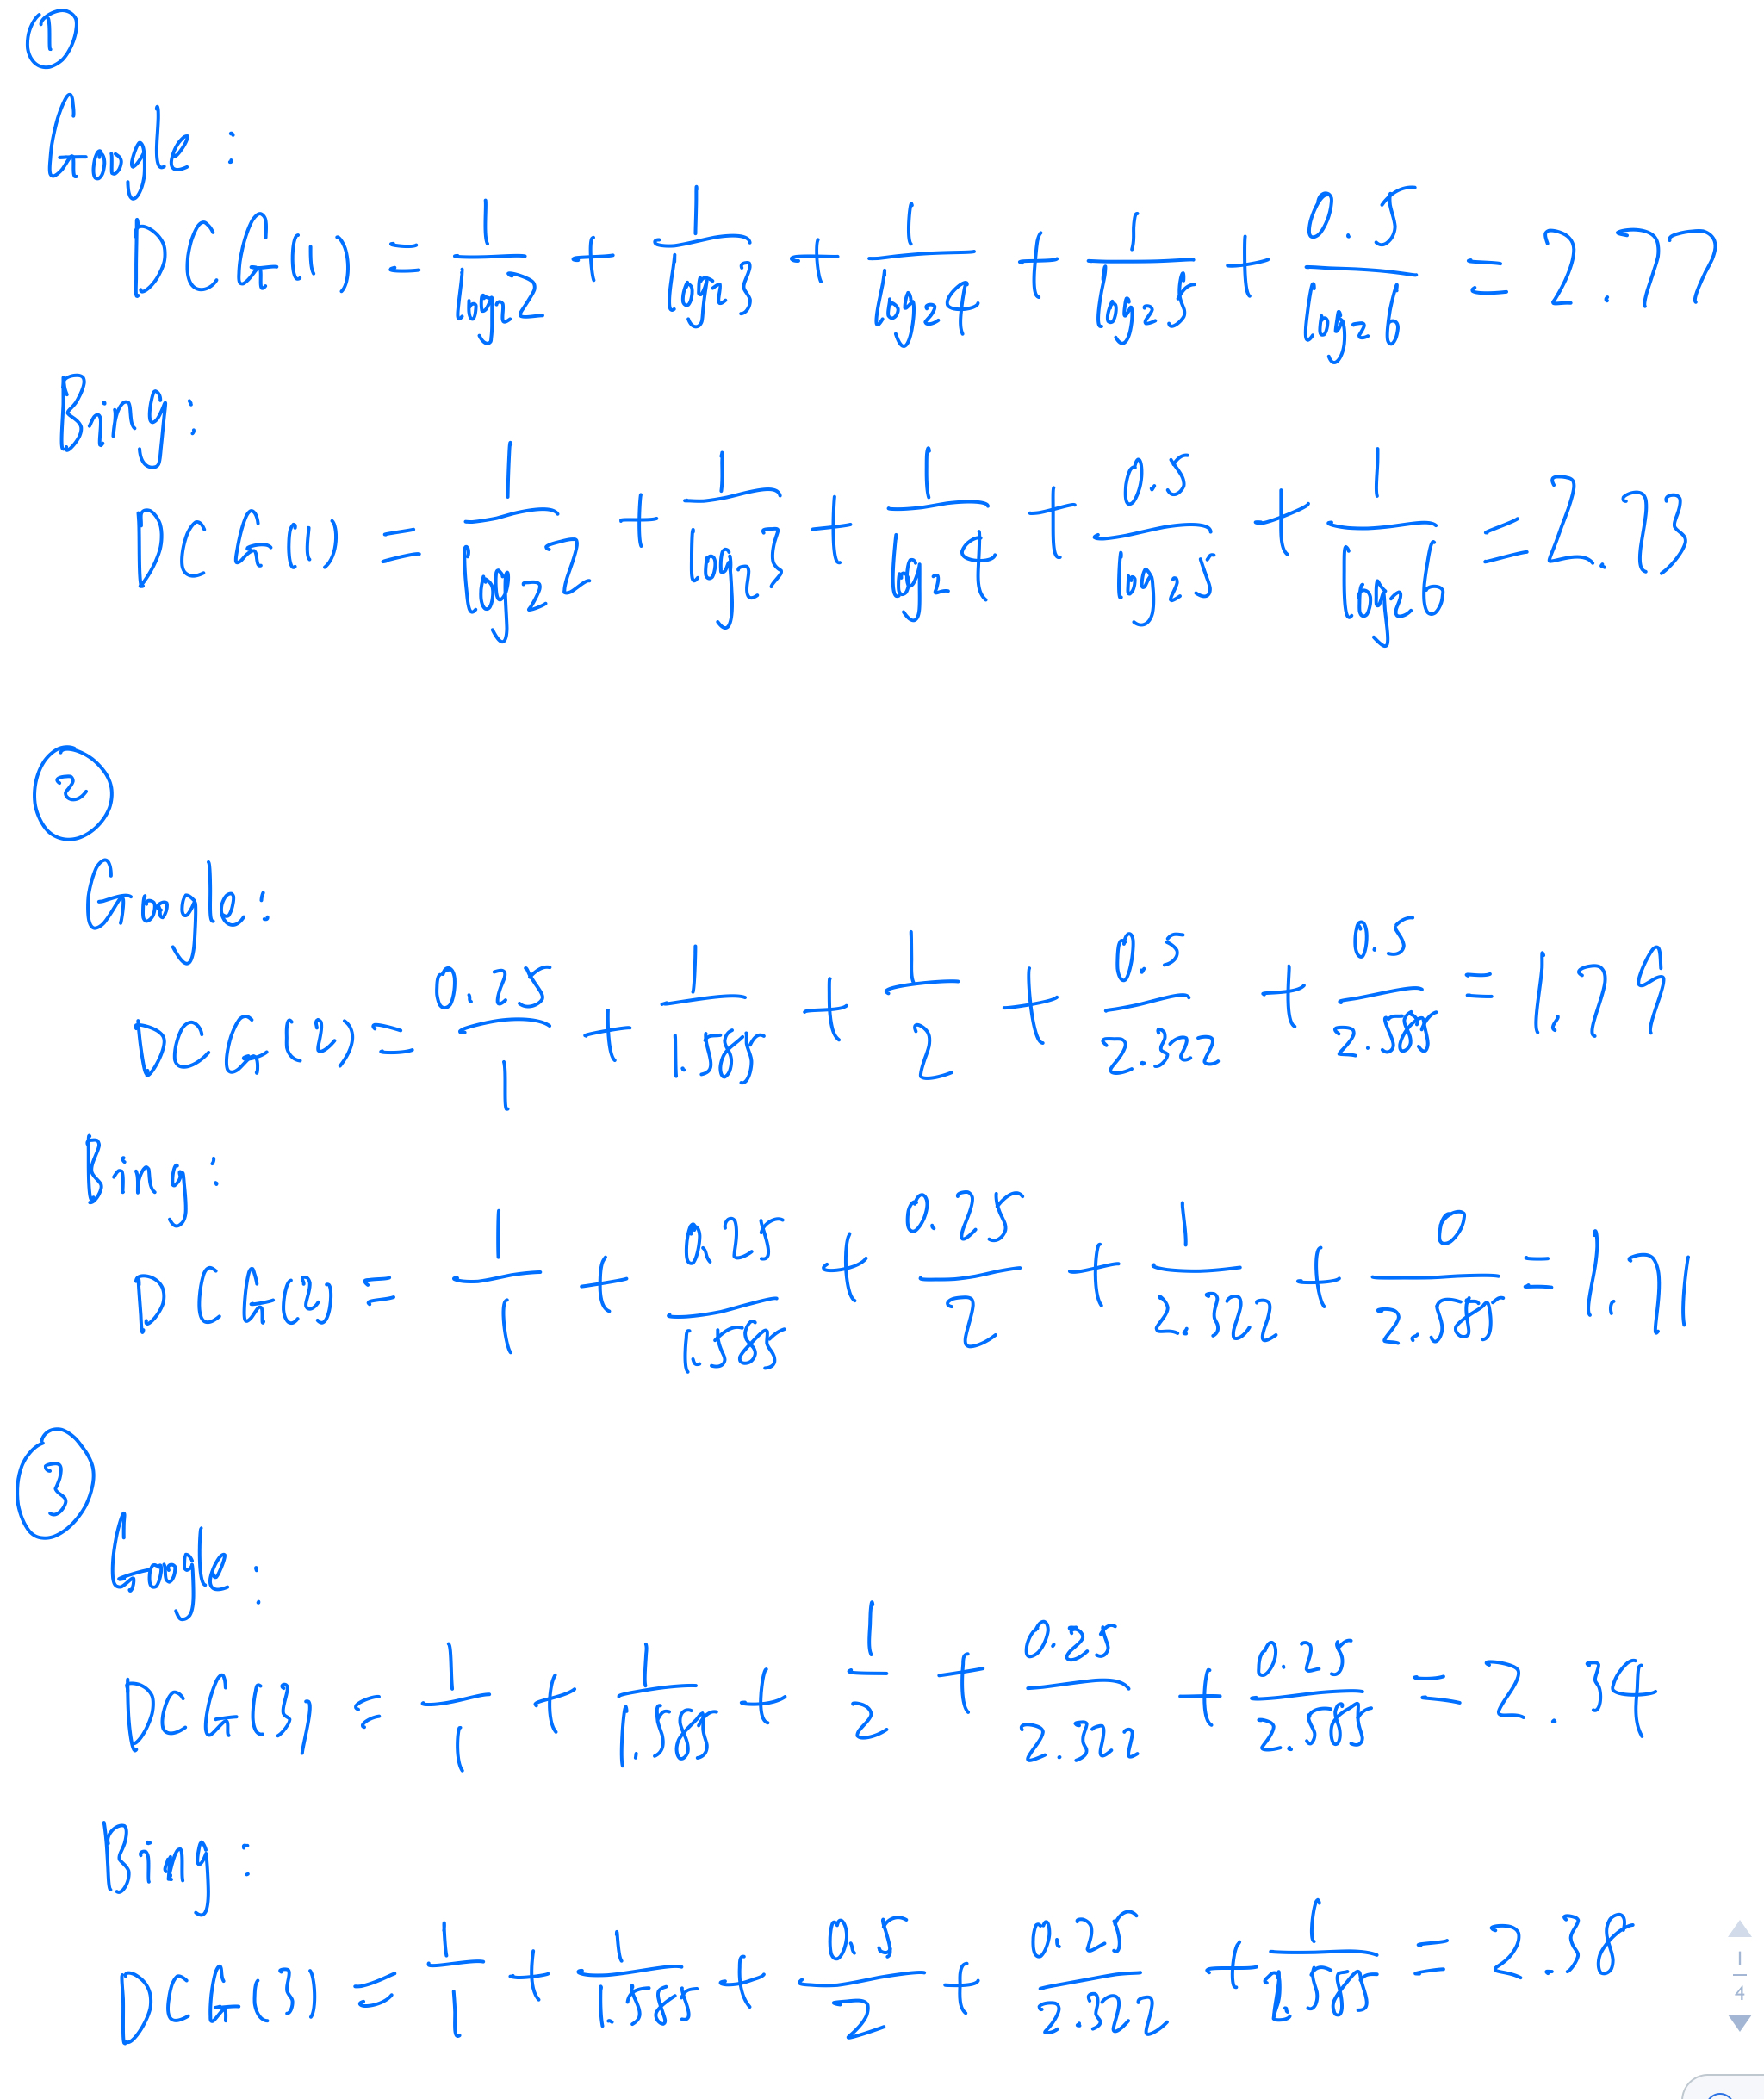 ①
Google:
DCG(1) = 1/log₂2 + 1/log₂3 + 1/log₂4 + 1/log₂5 + 0.5/log₂6 = 2.77
Bing:
DCG(1) = 1/log₂2 + 1/log₂3 + 1/log₂4 + 0.5/log₂5 + 1/log₂6 = 2.73
②
Google:
DCG(2) = 0.25/1 + 1/1.585 + 1/2 + 0.5/2.322 + 0.5/2.585 = 1.79
Bing:
DCG(2) = 1/1 + 0.25/1.585 + 0.25/2 + 1/2.322 + 0/2.585 = 1.71
③
Google:
DCG(3) = 1/1 + 1/1.585 + 1/2 + 0.25/2.322 + 0.25/2.585 = 2.34
Bing:
DCG(3) = 1/1 + 1/1.585 + 0.5/2 + 0.25/2.322 + 1/2.585 = 2.38
1
4